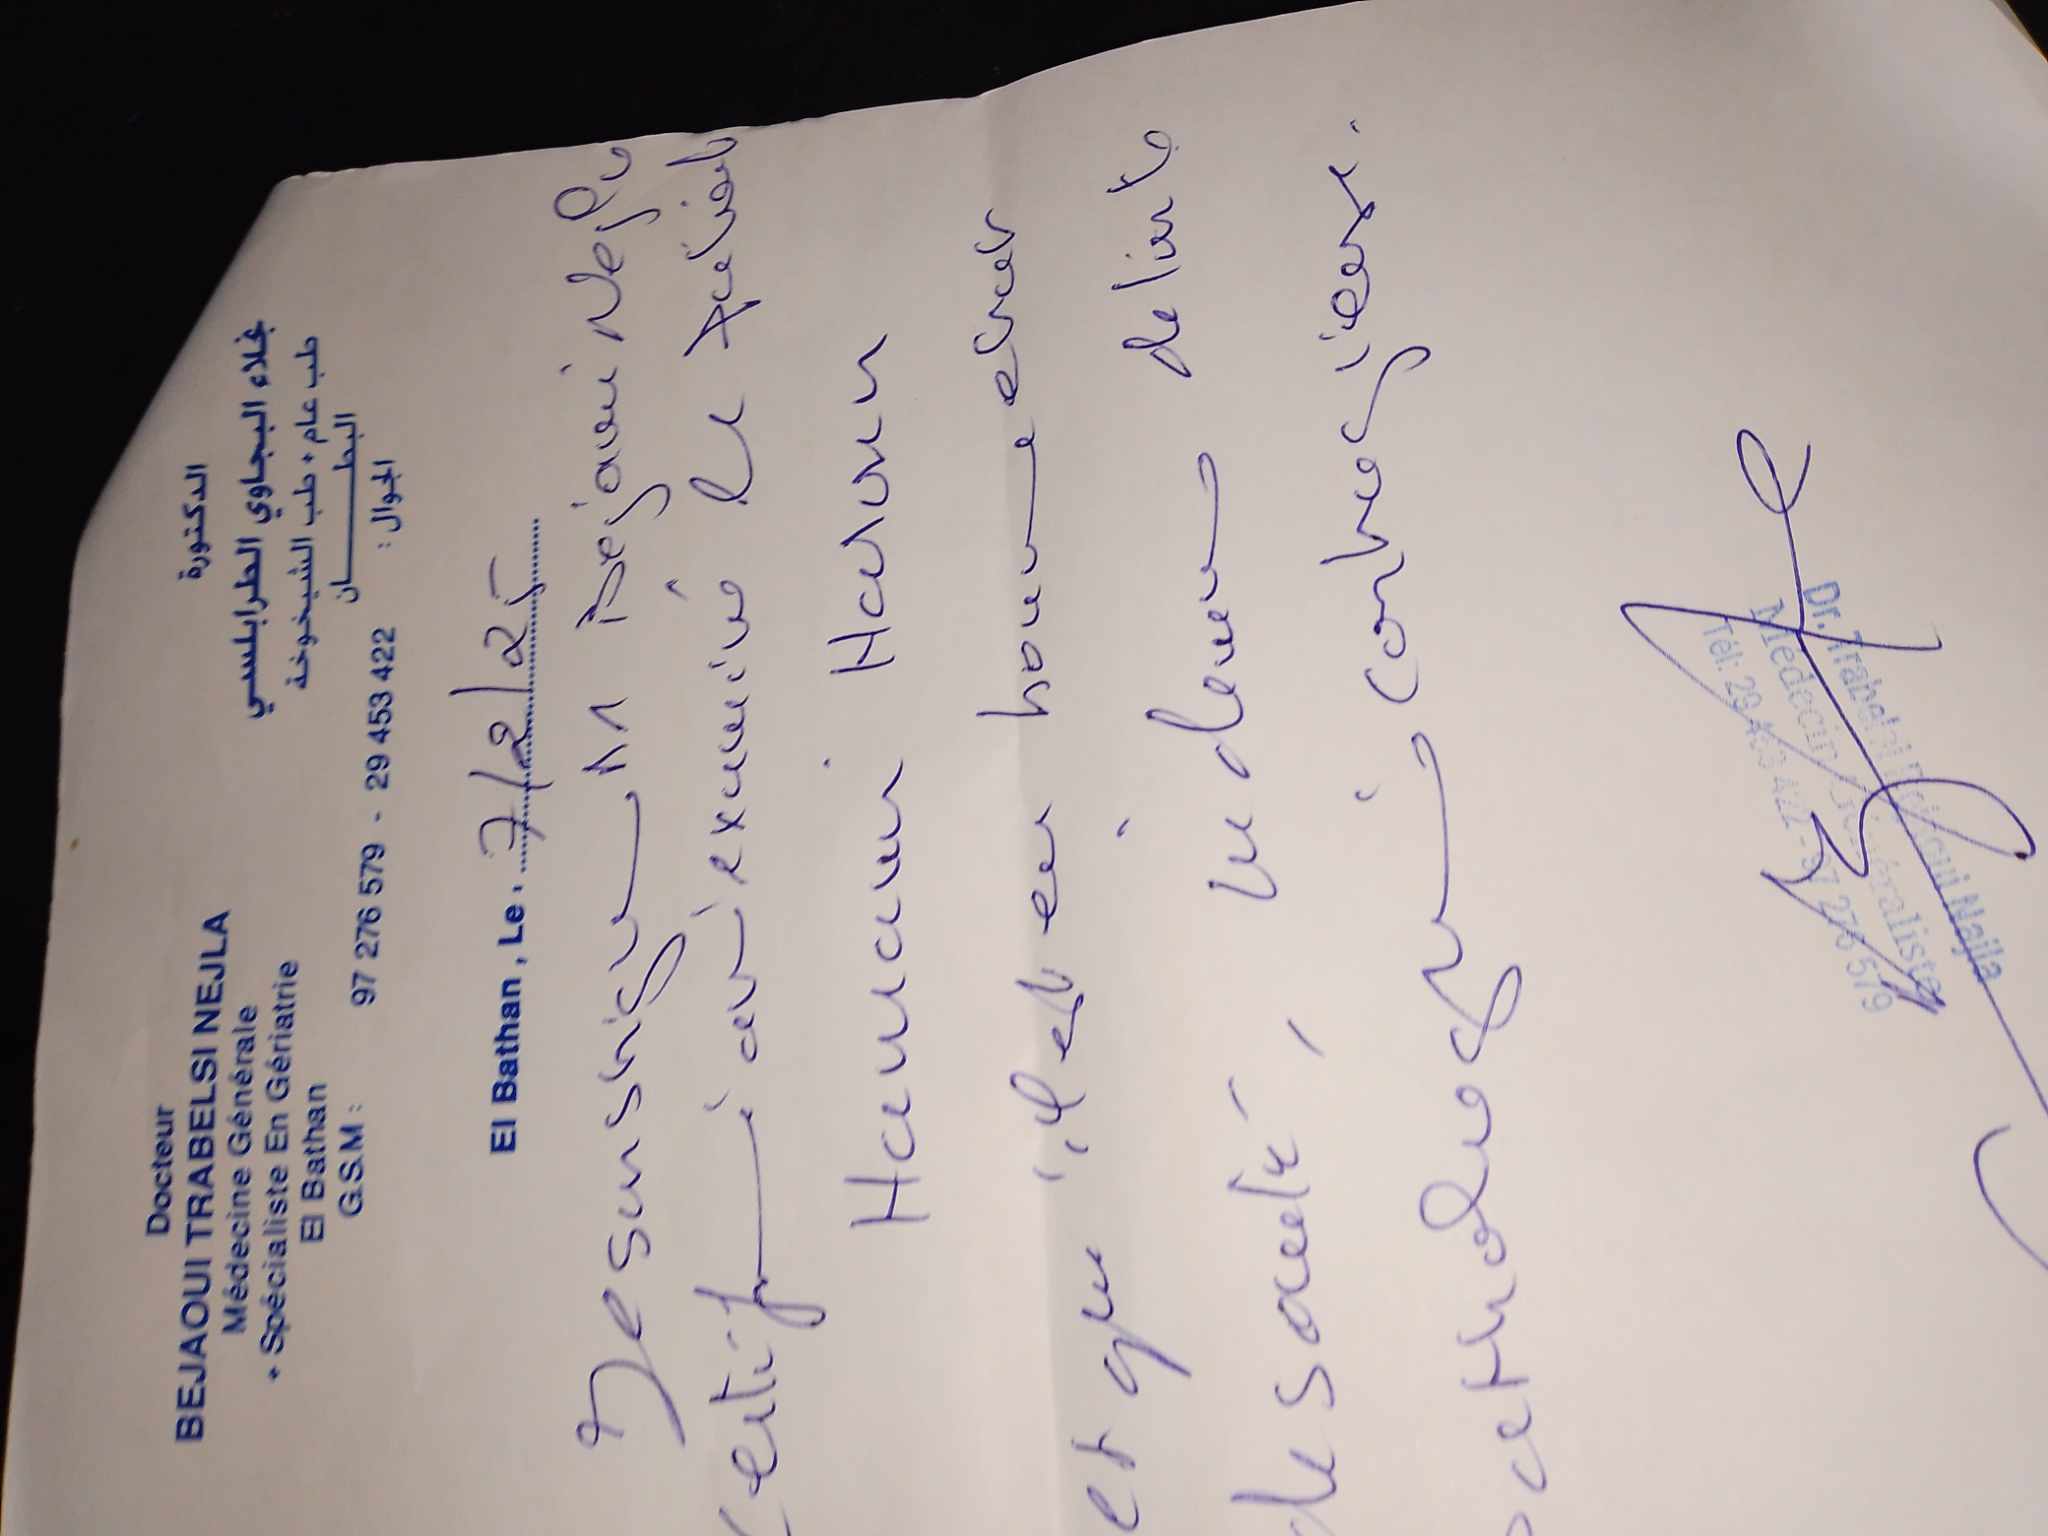 Docteur
BEJAOUI TRABELSI NEJLA
Médecine Générale
+ Spécialiste En Gériatrie
El Bathan
G.S.M : 97 276 579 - 29 453 422 الجوال :
الدكتورة
نجلاء البجاوي الطرابلسي
طب عام + طب الشيخوخة
البطـــــــــان
El Bathan , Le . 7/2/25
Je soussigné Bejaoui Nejla
certifie avoir examiné le patient
et que il est en bonne
de santé,
et contagieuse.
Dr. Trabelsi Bejaoui Najla
Médecin Généraliste
Tél: 29 453 422 - 97 276 579